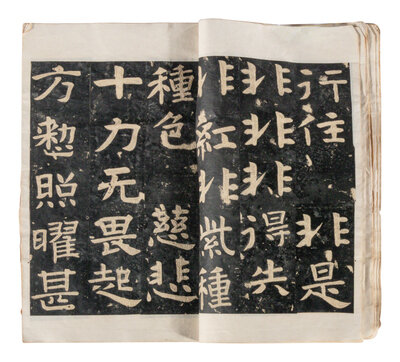 行住 非是
非非非得失
非紅非紫種
種色 慈悲
十力无畏起
方整照曜甚